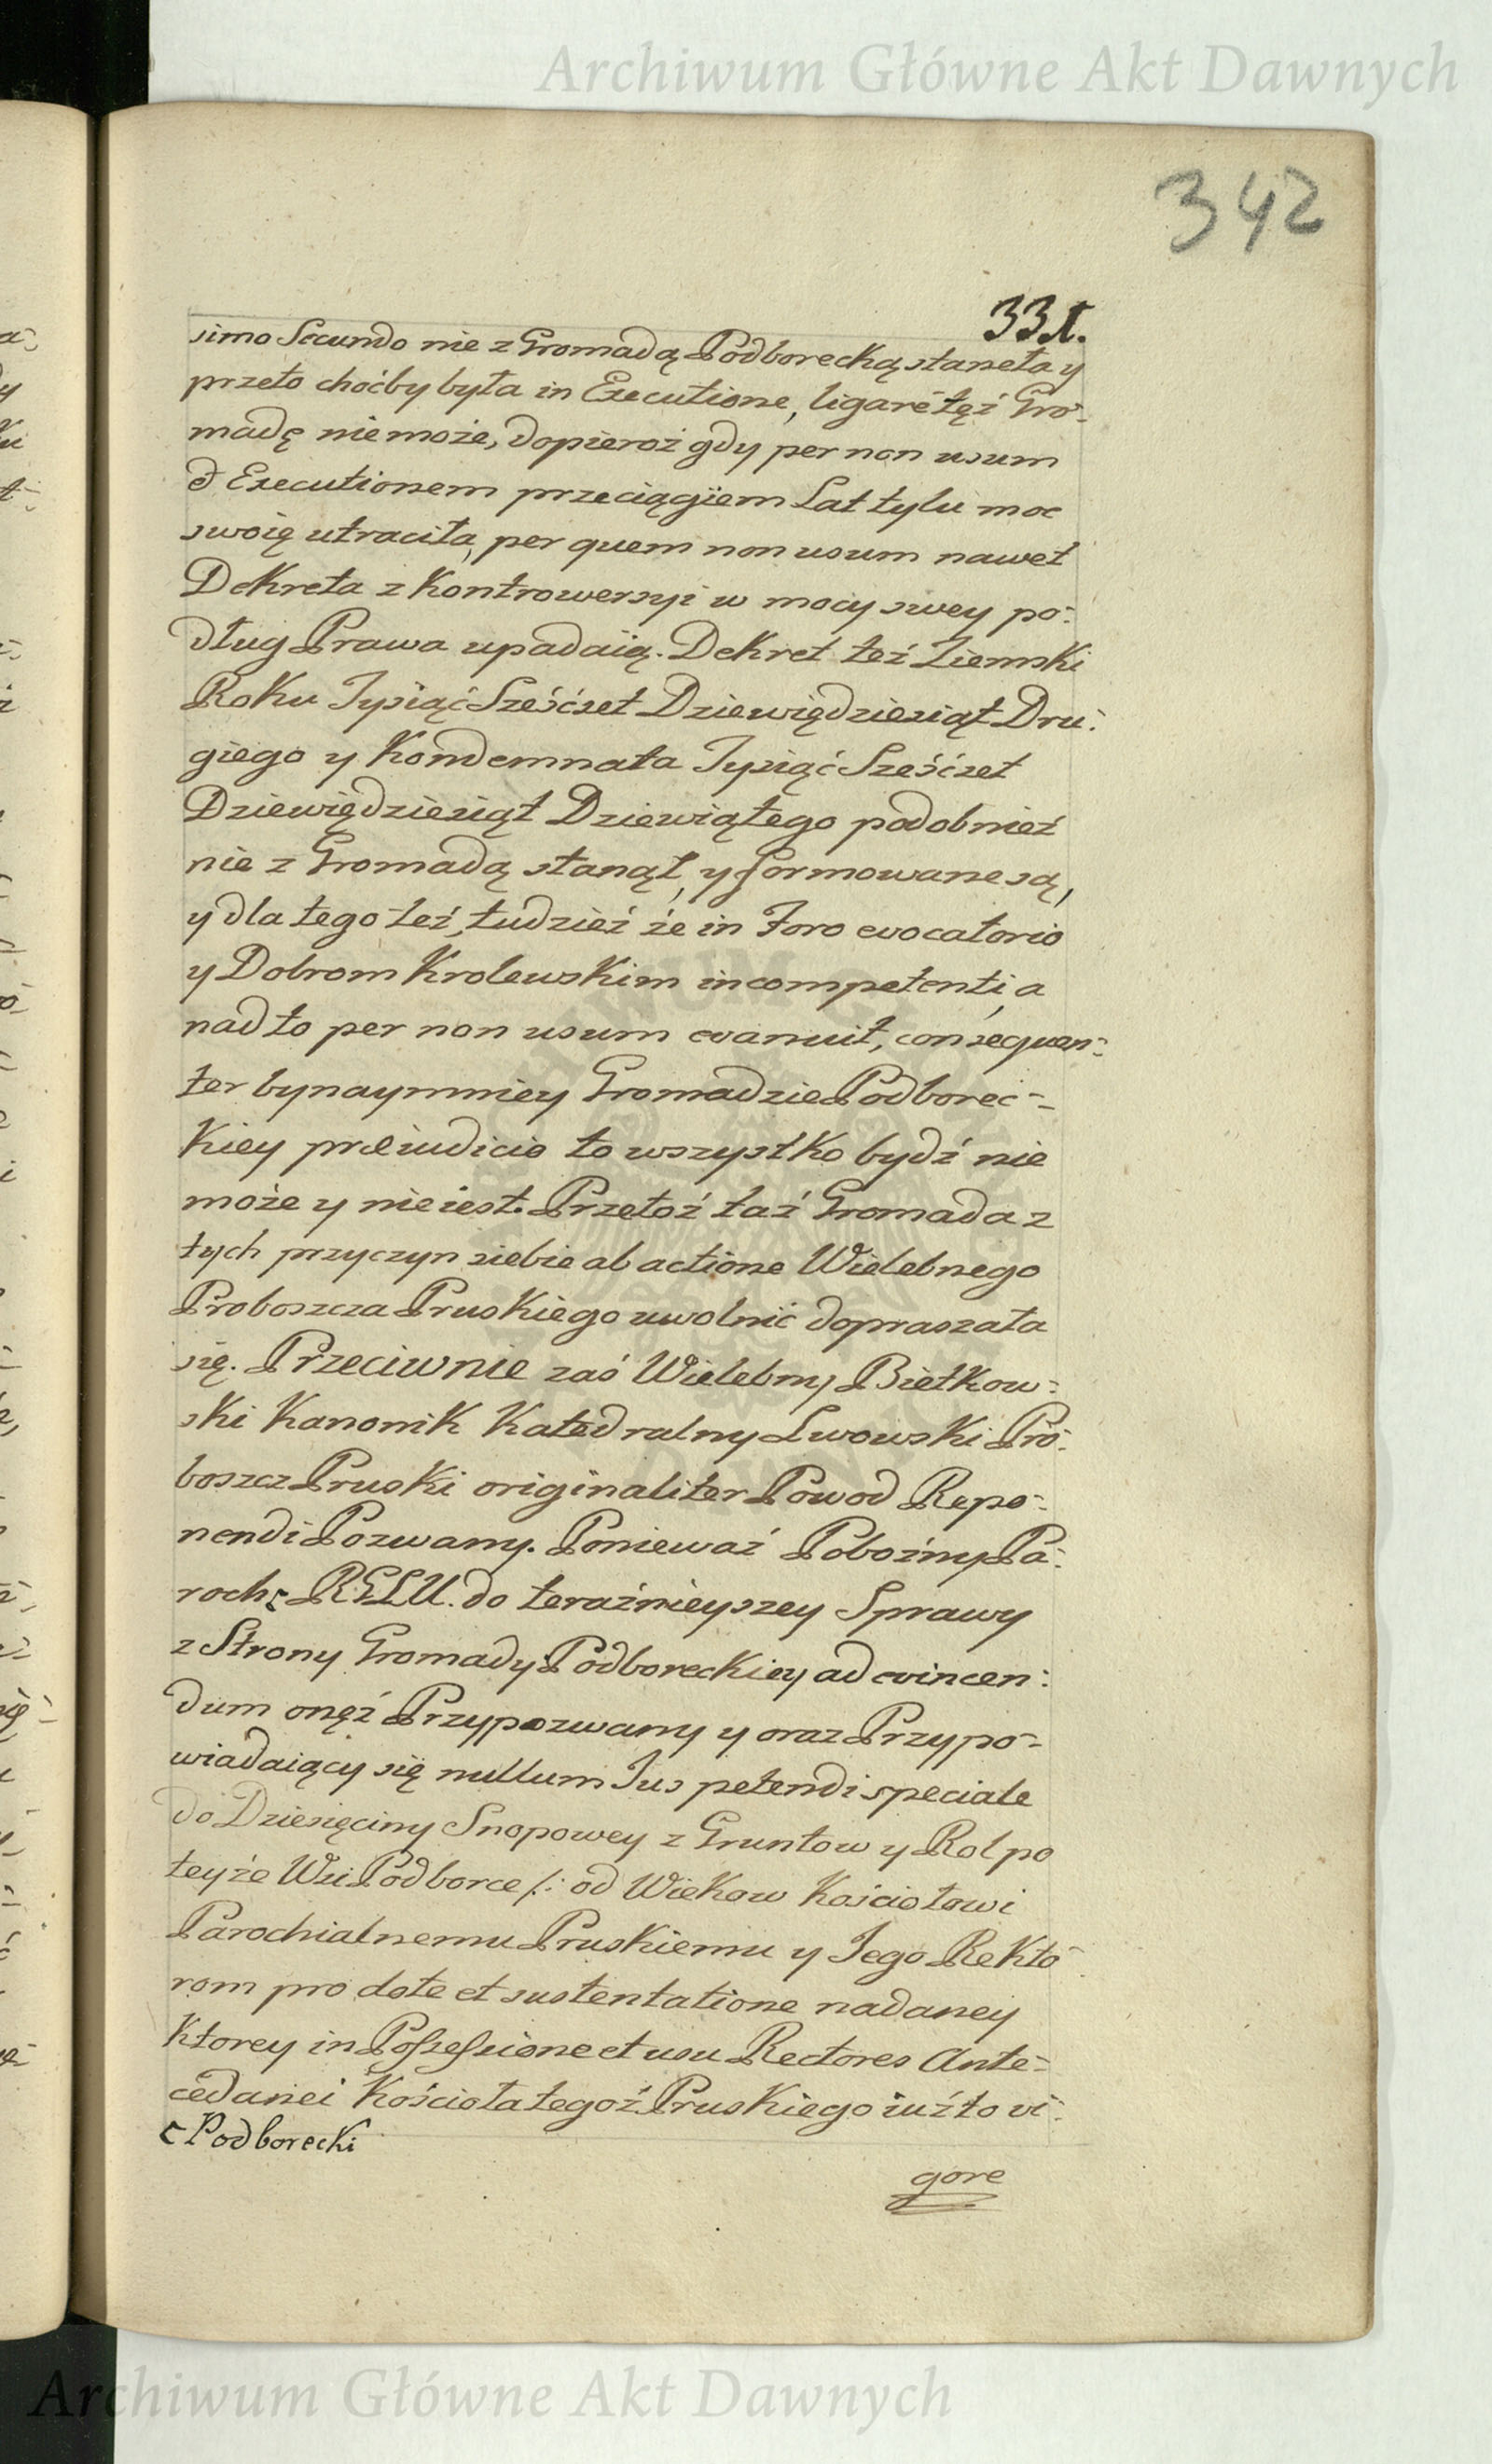 Archiwum Główne Akt Dawnych
342
331.
simo Secundo nie z Gromadą Podborecką staneła y
przeto choćby była in Executione, ligare też Gro-
madę nie może, dopieroż gdy per non usum
& Executionem przeciągiem Lat tylu moc
swoię utraciła, per quem non usum nawet
Dekreta z Kontrowersyi w mocy swey po-
dług Prawa upadaią. Dekret też Ziemski
Roku Tysiąć Sześćset Dziewiędziesiąt Dru-
giego y Kondemnata Tysiąć Sześćset
Dziewiędziesiąt Dziewiątego podobnież
nie z Gromadą stanął, y formowane są,
y dla tego też, tudzież że in Foro evocatorio
y Dobrom Krolewskim incompetenti, a
nad to per non usum evanuit, consequen-
ter bynaymniey Gromadzie Podborec-
kiey præiudicio to wszystko bydź nie
może y nie iest. Przetoż taż Gromada z
tych przyczyn siebie ab actione Wielebnego
Proboszcza Pruskiego uwolnić dopraszała
się. Przeciwnie zaś Wielebny Biełkow-
ski Kanonik Katedralny Lwowski Pro-
boszcz Pruski originaliter Powod Repo-
nendi Pozwany. Ponieważ Pobożny Pa-
roch R.G.L.U. do teraźnieyszey Sprawy
z Strony Gromady Podboreckiey ad evincen-
dum onęż Przypozwany y oraz Przypo-
wiadaiący się nullum Jus petendi speciale
do Dziesięciny Snopowey z Gruntow y Rol po
teyże Wsi Podborce /: od Wiekow Kościołowi
Parochialnemu Pruskiemu y Jego Rekto-
rom pro dote et sustentatione nadaney
Ktorey in Possessione et usu Rectores Ante-
cedanei Kościoła tegoż Pruskiego iuż to vi-
Podborecki
gore
Archiwum Główne Akt Dawnych